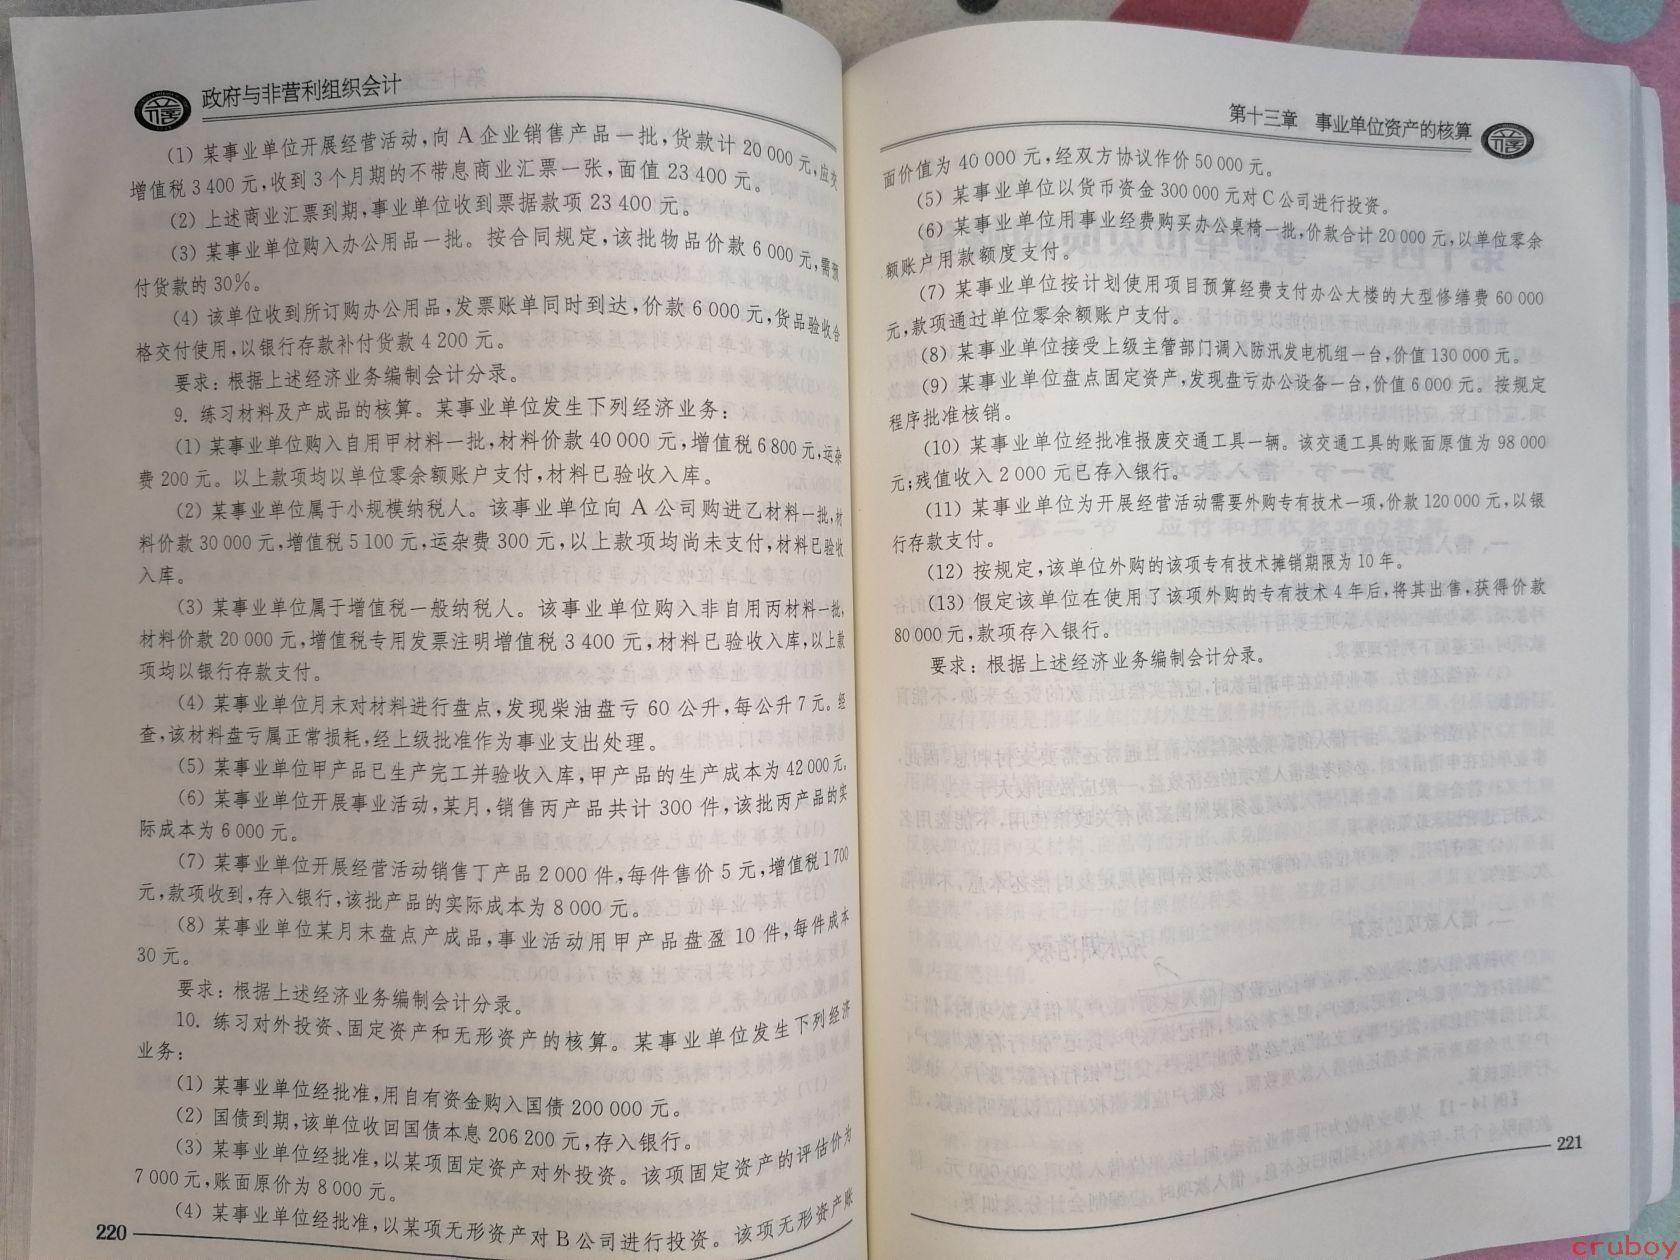 政府与非营利组织会计
(1) 某事业单位开展经营活动,向 A 企业销售产品一批,货款计 20 000 元,应交
增值税 3 400 元,收到 3 个月期的不带息商业汇票一张,面值 23 400 元。
(2) 上述商业汇票到期,事业单位收到票据款项 23 400 元。
(3) 某事业单位购入办公用品一批。按合同规定,该批物品价款 6 000 元,需预
付货款的 30%。
(4) 该单位收到所订购办公用品,发票账单同时到达,价款 6 000 元,货品验收合
格交付使用,以银行存款补付货款 4 200 元。
要求:根据上述经济业务编制会计分录。
9. 练习材料及产成品的核算。某事业单位发生下列经济业务:
(1) 某事业单位购入自用甲材料一批,材料价款 40 000 元,增值税 6 800 元,运杂
费 200 元。以上款项均以单位零余额账户支付,材料已验收入库。
(2) 某事业单位属于小规模纳税人。该事业单位向 A 公司购进乙材料一批,材
料价款 30 000 元,增值税 5 100 元,运杂费 300 元,以上款项均尚未支付,材料已验收
入库。
(3) 某事业单位属于增值税一般纳税人。该事业单位购入非自用丙材料一批,
材料价款 20 000 元,增值税专用发票注明增值税 3 400 元,材料已验收入库,以上款
项均以银行存款支付。
(4) 某事业单位月末对材料进行盘点,发现柴油盘亏 60 公升,每公升 7 元。经
查,该材料盘亏属正常损耗,经上级批准作为事业支出处理。
(5) 某事业单位甲产品已生产完工并验收入库,甲产品的生产成本为 42 000 元。
(6) 某事业单位开展事业活动,某月,销售丙产品共计 300 件,该批丙产品的实
际成本为 6 000 元。
(7) 某事业单位开展经营活动销售丁产品 2 000 件,每件售价 5 元,增值税 1 700
元,款项收到,存入银行,该批产品的实际成本为 8 000 元。
(8) 某事业单位某月末盘点产成品,事业活动用甲产品盘盈 10 件,每件成本
30 元。
要求:根据上述经济业务编制会计分录。
10. 练习对外投资、固定资产和无形资产的核算。某事业单位发生下列经济
业务:
(1) 某事业单位经批准,用自有资金购入国债 200 000 元。
(2) 国债到期,该单位收回国债本息 206 200 元,存入银行。
(3) 某事业单位经批准,以某项固定资产对外投资。该项固定资产的评估价为
7 000 元,账面原价为 8 000 元。
(4) 某事业单位经批准,以某项无形资产对 B 公司进行投资。该项无形资产账
220
第十三章 事业单位资产的核算
面价值为 40 000 元,经双方协议作价 50 000 元。
(5) 某事业单位以货币资金 300 000 元对 C 公司进行投资。
(6) 某事业单位用事业经费购买办公桌椅一批,价款合计 20 000 元,以单位零余
额账户用款额度支付。
(7) 某事业单位按计划使用项目预算经费支付办公大楼的大型修缮费 60 000
元,款项通过单位零余额账户支付。
(8) 某事业单位接受上级主管部门调入防汛发电机组一台,价值 130 000 元。
(9) 某事业单位盘点固定资产,发现盘亏办公设备一台,价值 6 000 元。按规定
程序批准核销。
(10) 某事业单位经批准报废交通工具一辆。该交通工具的账面原值为 98 000
元;残值收入 2 000 元已存入银行。
(11) 某事业单位为开展经营活动需要外购专有技术一项,价款 120 000 元,以银
行存款支付。
(12) 按规定,该单位外购的该项专有技术摊销期限为 10 年。
(13) 假定该单位在使用了该项外购的专有技术 4 年后,将其出售,获得价款
80 000 元,款项存入银行。
要求:根据上述经济业务编制会计分录。
221
cruboy